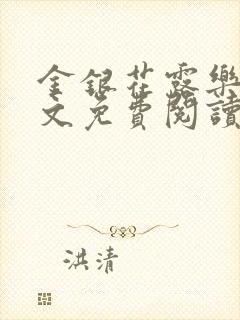 金銀花露樂
文免費閱讀
洪清